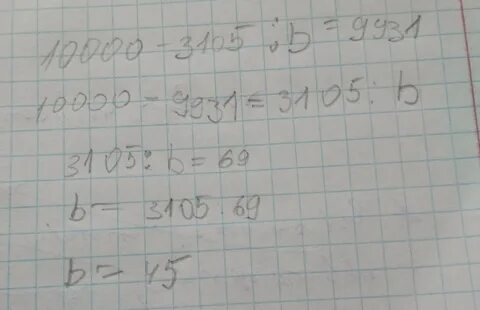 10000 - 3105 : b = 9931
10000 - 9931 = 3105 : b
3105 : b = 69
b = 3105 : 69
b = 45